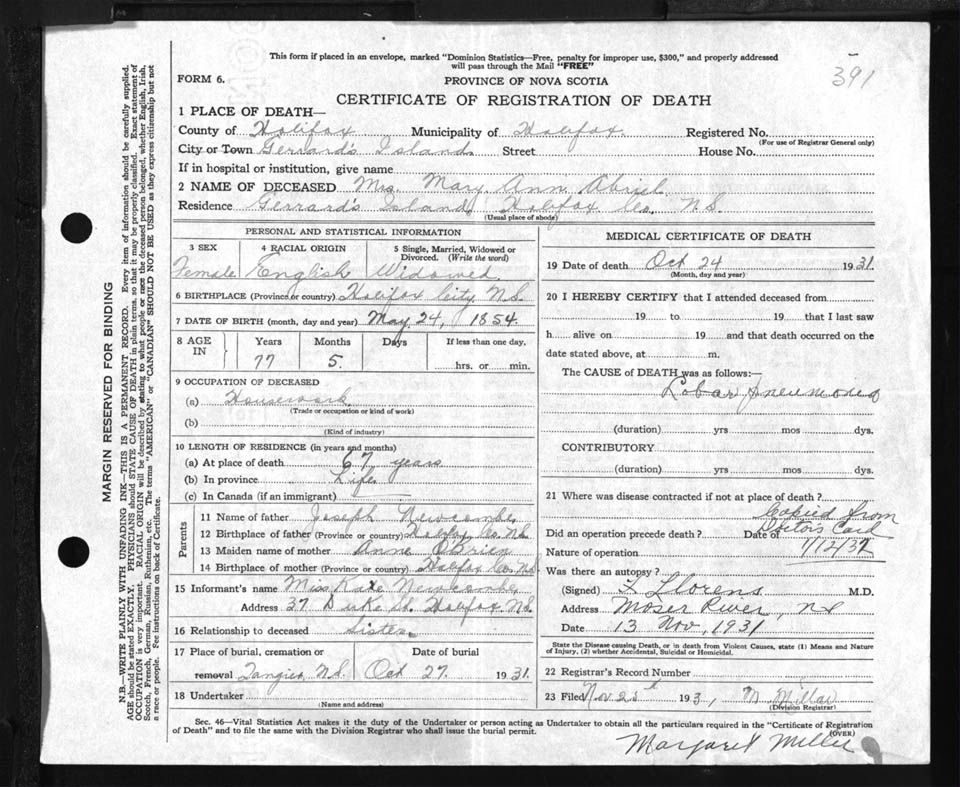 This form if placed in an envelope, marked "Dominion Statistics—Free, penalty for improper use, $300," and properly addressed
will pass through the Mail "FREE"
391
FORM 6.
PROVINCE OF NOVA SCOTIA
CERTIFICATE OF REGISTRATION OF DEATH
1 PLACE OF DEATH—
County of Halifax Municipality of Halifax Registered No.
(For use of Registrar General only)
City or Town Gerrard's Island Street House No.
If in hospital or institution, give name
2 NAME OF DECEASED Mrs. Mary Ann Abriel
Residence Gerrard's Island Halifax Co. N.S.
(Usual place of abode)
PERSONAL AND STATISTICAL INFORMATION
3 SEX 4 RACIAL ORIGIN 5 Single, Married, Widowed or Divorced. (Write the word)
Female English Widowed
6 BIRTHPLACE (Province or country) Halifax City N.S.
7 DATE OF BIRTH (month, day and year) May 24, 1854.
8 AGE IN Years Months Days If less than one day,
77 5. hrs. or min.
9 OCCUPATION OF DECEASED
(a) Housework
(Trade or occupation or kind of work)
(b)
(Kind of industry)
10 LENGTH OF RESIDENCE (in years and months)
(a) At place of death 67 years
(b) In province Life
(c) In Canada (if an immigrant)
Parents
11 Name of father Joseph Newcombe
12 Birthplace of father (Province or country) Halifax Co. N.S.
13 Maiden name of mother Anne O'Brien
14 Birthplace of mother (Province or country) Halifax Co. N.S.
15 Informant's name Miss Kate Newcombe
Address 37 Duke St. Halifax N.S.
16 Relationship to deceased Sister
17 Place of burial, cremation or Date of burial
removal Tangier, N.S. Oct 27. 1931.
18 Undertaker
(Name and address)
MEDICAL CERTIFICATE OF DEATH
19 Date of death Oct 24 1931.
(Month, day and year)
20 I HEREBY CERTIFY that I attended deceased from
19 to 19 that I last saw
h alive on 19 and that death occurred on the
date stated above, at m.
The CAUSE of DEATH was as follows:—
Lobar Pneumonia
(duration) yrs mos dys.
CONTRIBUTORY
(duration) yrs mos dys.
21 Where was disease contracted if not at place of death?
Copied from
Did an operation precede death? Date of Doctors Card
Nature of operation 1/12/31
Was there an autopsy?
(Signed) Llorens M.D.
Address Moser River, NS
Date 13 Nov, 1931
State the Disease causing Death, or in death from Violent Causes, state (1) Means and Nature of Injury, (2) whether Accidental, Suicidal or Homicidal.
22 Registrar's Record Number
23 Filed Nov 25th 193, M. Millar
(Division Registrar)
Sec. 46—Vital Statistics Act makes it the duty of the Undertaker or person acting as Undertaker to obtain all the particulars required in the "Certificate of Registration
of Death" and to file the same with the Division Registrar who shall issue the burial permit.
(OVER)
Margaret Miller
MARGIN RESERVED FOR BINDING
N.B.—WRITE PLAINLY WITH UNFADING INK—THIS IS A PERMANENT RECORD. Every item of information should be carefully supplied.
AGE should be stated EXACTLY. PHYSICIANS should STATE CAUSE OF DEATH in plain terms, so that it may be properly classified. Exact statement of
OCCUPATION is very important. RACIAL ORIGIN will be described by stating to what people or race the deceased person belonged, whether English, Irish,
Scotch, French, German, Russian, Ruthenian, etc. The terms "AMERICAN" or "CANADIAN" SHOULD NOT BE USED as they express citizenship but not
a race or people. Fee instructions on back of Certificate.